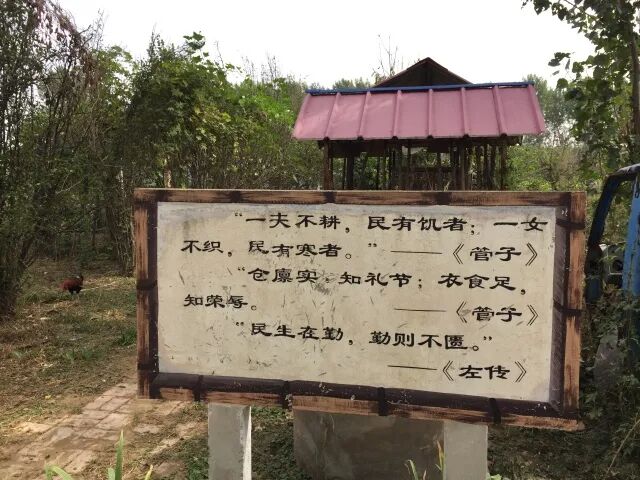 “一夫不耕，民有饥者；一女
不织，民有寒者。”——《管子》
“仓廪实，知礼节；衣食足，
知荣辱。——《管子》
“民生在勤，勤则不匮。”
——《左传》